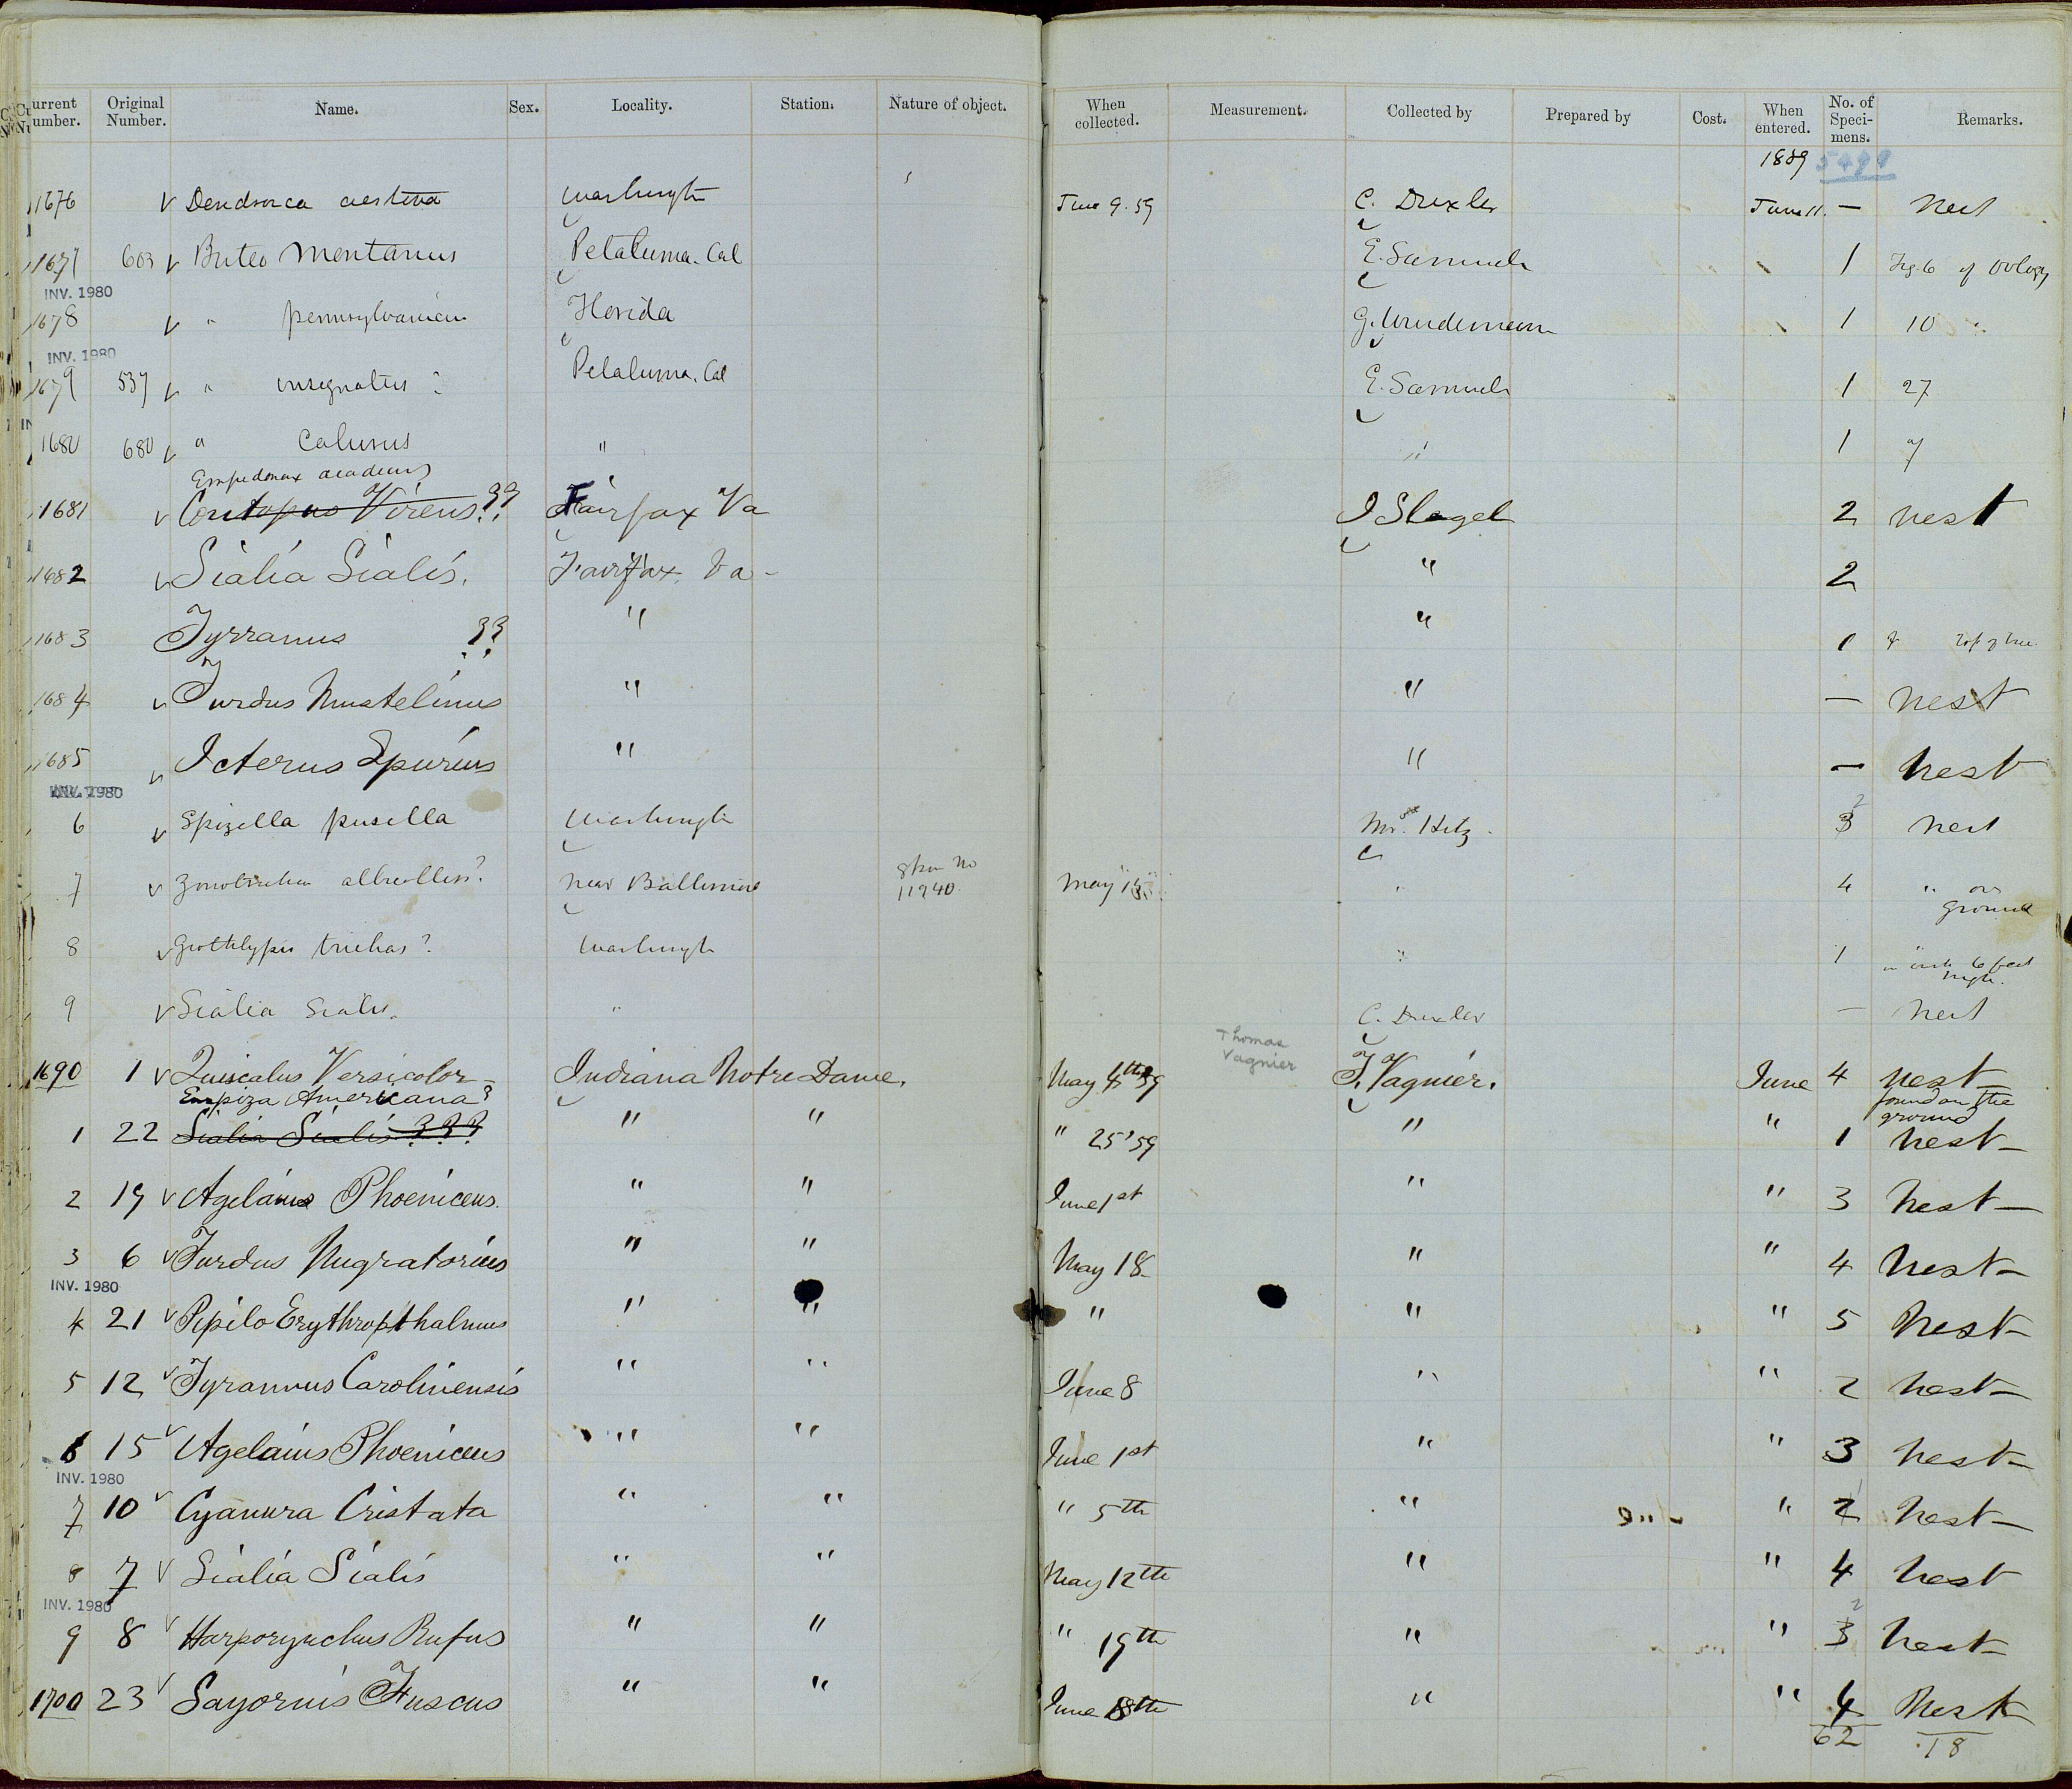 Current Number. Original Number. Name. Sex. Locality. Station. Nature of object. When collected. Measurement. Collected by Prepared by Cost. When entered. No. of Specimens. Remarks.
1859 5499
1676 v Dendroica aestiva Washingtn June 9. 59 C. Drexler June 11. — Nest
1677 603 v Buteo montanus Petaluma. Cal E. Samuels 1 Fig. 6 of Oology
INV. 1980
1678 v " pennsylvanicus Florida G. Wurdemann 1 10 "
INV. 1980
1679 537 v " insignatus ? Petaluma. Cal E. Samuels 1 27
1680 680 v " Calurus " " 1 7
Empidonax acadicus
1681 v Contopus Virens?? Fairfax Va I Slagel 2 nest
1682 v Sialia Sialis. Fairfax, Va - " 2
1683 Tyrranus ?? " " 1 top of tree.
1684 v Turdus Mustelinus " " — nest
1685 v Icterus Spurius " " — nest
INV. 1980
2
6 v Spizella pusilla Washingtn Mr. Hitz. 3 Nest
7 v Zonotrichia albicollis? near Baltimore skin No 11940. May 15 " 4 " on ground
8 v Geothlypis trichas? Washingtn " 1 6 feet high.
9 v Sialia Sialis. " C. Drexler — Nest
Thomas Vagnier
1690 1 v Quiscalus Versicolor - Indiana Notre Dame. May 4th 59 T. Vagnier. June 4 nest
Euspiza Americana? found on the ground
1 22 Sialia Sialis ??? " " " 25' 59 " " 1 nest -
2 19 v Agelaius Phoeniceus. " " June 1st " " 3 nest —
3 6 v Turdus Migratorius " " May 18 " " 4 Nest -
INV. 1980
4 21 v Pipilo Erythropthalmus " " " " " 5 Nest -
5 12 v Tyrannus Carolinensis " " June 8 " " 2 nest -
6 15 v Agelaius Phoeniceus " " June 1st " " 3 nest -
INV. 1980
7 10 v Cyanura Cristata " " " 5th " " 2 nest -
8 7 v Sialia Sialis " " May 12th " " 4 nest
INV. 1980
2
9 8 v Harporynchus Rufus " " " 19th " " 3 nest -
1700 23 v Sayornis Fuscus " " June 18th " " 4 Nest -
62 18